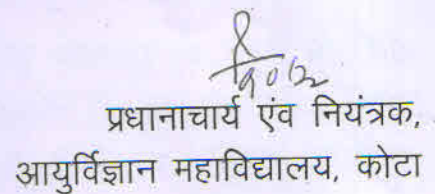 प्रधानाचार्य एंव नियंत्रक,
आयुर्विज्ञान महाविद्यालय, कोटा